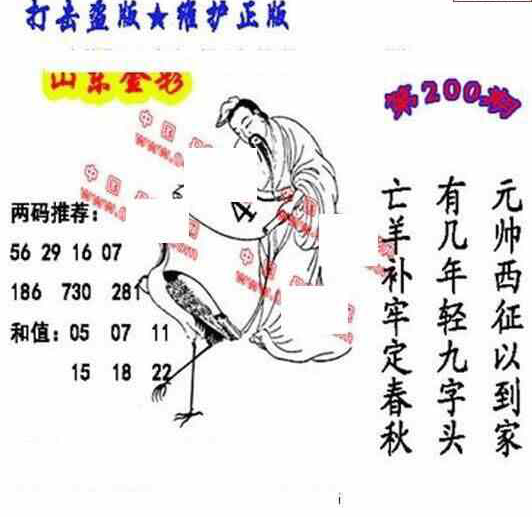 打击盗版★维护正版
山东金彩
第200期
元帅西征以到家
有几年轻九字头
亡羊补牢定春秋
两码推荐：
56 29 16 07
186 730 281
和值：05 07 11
15 18 22
4